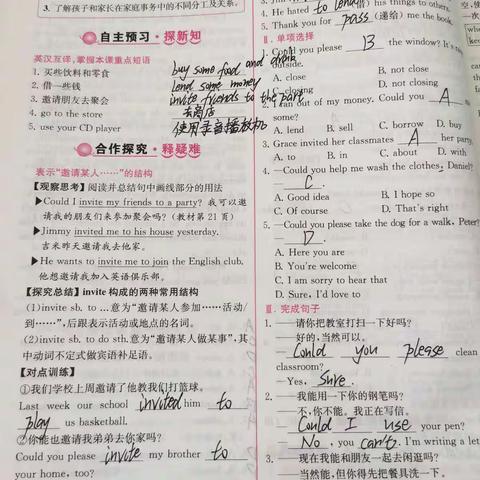 3. 了解孩子和家长在家庭事务中的不同分工及关系。
自主预习·探新知
英汉互译,掌握本课重点短语
1. 买些饮料和零食 buy some food and drink
2. 借一些钱 lend some money
3. 邀请朋友去聚会 invite friends to the party
4. go to the store 去商店
5. use your CD player 使用录音播放机
合作探究·释疑难
表示“邀请某人……”的结构
【观察思考】阅读并总结句中画线部分的用法
▶Could I invite my friends to a party? 我可以邀
请我的朋友们来参加聚会吗?(教材第 21 页)
▶Jimmy invited me to his house yesterday.
吉米昨天邀请我去他家。
▶He wants to invite me to join the English club.
他想邀请我加入英语俱乐部。
【探究总结】invite 构成的两种常用结构
(1)invite sb. to …意为“邀请某人参加……活动/
到……”,后跟表示活动或地点的名词。
(2)invite sb. to do sth.意为“邀请某人做某事”,其
中动词不定式做宾语补足语。
【对点训练】
①我们学校上周邀请了他教我们打篮球。
Last week our school invited him to
play us basketball.
②你能也邀请我弟弟去你家吗?
Could you please invite my brother to
your home, too?
4. He hated to lend(借) his things to others.
5. Thank you for pass(递给) me the book.
Ⅱ. 单项选择
1. Could you please B the window? It's
outside.
A. close B. not close
C. closing D. not closing
2. I ran out of my money. Could you A
some?
A. lend B. sell C. borrow D. buy
3. Grace invited her classmates A her party.
A. to B. in C. about D. with
4. —Could you help me wash the clothes, Daniel?
— C.
A. Good idea B. I hope so
C. Of course D. That's right
5. —Could you please take the dog for a walk, Peter?
— D.
A. Here you are
B. You're welcome
C. I am sorry to hear that
D. Sure, I'd love to
Ⅲ. 完成句子
1. ——请你把教室打扫一下好吗?
——好的,当然可以。
—Could you please clean
classroom?
—Yes, sure.
2. ——我能用一下你的钢笔吗?
——不,你不能。我正在写信。
—Could I use your pen?
—No, you can't. I'm writing a let
3. ——现在我能和朋友一起去闲逛吗?
——当然能,但你得先把餐具洗一下。